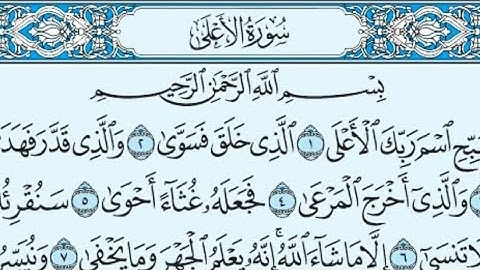 سُورَةُ الأَعْلَى
بِسْمِ اللَّهِ الرَّحْمَٰنِ الرَّحِيمِ
سَبِّحِ ٱسْمَ رَبِّكَ ٱلْأَعْلَى ١ ٱلَّذِى خَلَقَ فَسَوَّىٰ ٢ وَٱلَّذِى قَدَّرَ فَهَدَ
وَٱلَّذِىٓ أَخْرَجَ ٱلْمَرْعَىٰ ٤ فَجَعَلَهُۥ غُثَآءً أَحْوَىٰ ٥ سَنُقْرِئُ
لَا تَنسَىٰٓ ٦ إِلَّا مَا شَآءَ ٱللَّهُ إِنَّهُۥ يَعْلَمُ ٱلْجَهْرَ وَمَا يَخْفَىٰ ٧ وَنُيَسِّرُ